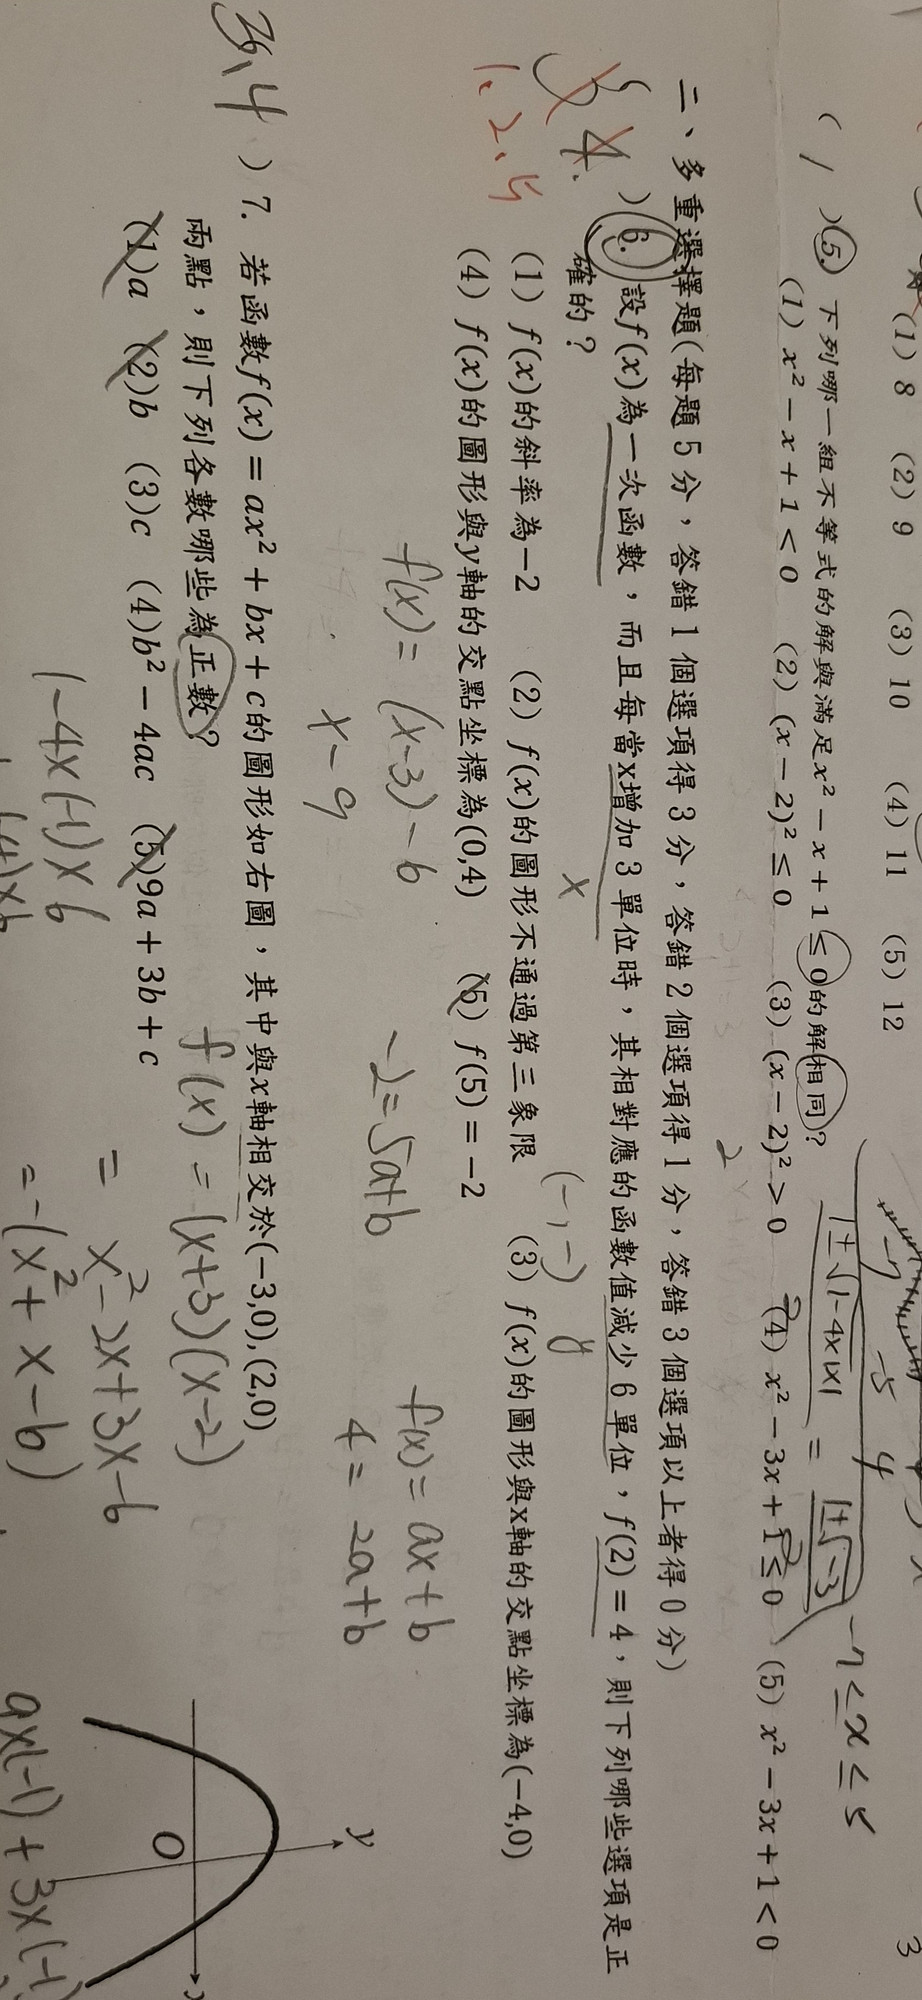 (1) 8 (2) 9 (3) 10 (4) 11 (5) 12
3
-7 -5 4
-7 ≤ x ≤ 5
( 1 ) 5. 下列哪一組不等式的解與滿足x² − x + 1 ≤ 0的解相同?
(1) x² − x + 1 < 0 (2) (x − 2)² ≤ 0 (3) (x − 2)² > 0 (4) x² − 3x + 1 ≤ 0 (5) x² − 3x + 1 < 0
1±√1-4×1×1 = 1±√-3
2
二、多重選擇題(每題5分，答錯1個選項得3分，答錯2個選項得1分，答錯3個選項以上者得0分)
3 4.
1、2、5
) 6. 設f(x)為一次函數，而且每當x增加3單位時，其相對應的函數值減少6單位，f(2) = 4，則下列哪些選項是正
確的？
x
(-,-) y
(1) f(x)的斜率為−2 (2) f(x)的圖形不通過第三象限 (3) f(x)的圖形與x軸的交點坐標為(−4,0)
(4) f(x)的圖形與y軸的交點坐標為(0,4) (5) f(5) = −2
f(x) = (x-3) - 6
x - 9
-2 = 5a+b
f(x) = ax+b
4 = 2a+b
3、4 ) 7. 若函數f(x) = ax² + bx + c的圖形如右圖，其中與x軸相交於(−3,0),(2,0)
兩點，則下列各數哪些為正數?
(1)a (2)b (3)c (4)b² − 4ac (5)9a + 3b + c
f(x) = (x+3)(x-2)
= x²-2x+3x-6
= -(x²+x-6)
1-4×(-1)×6
y
O
ax(-1) + 3x(-1)